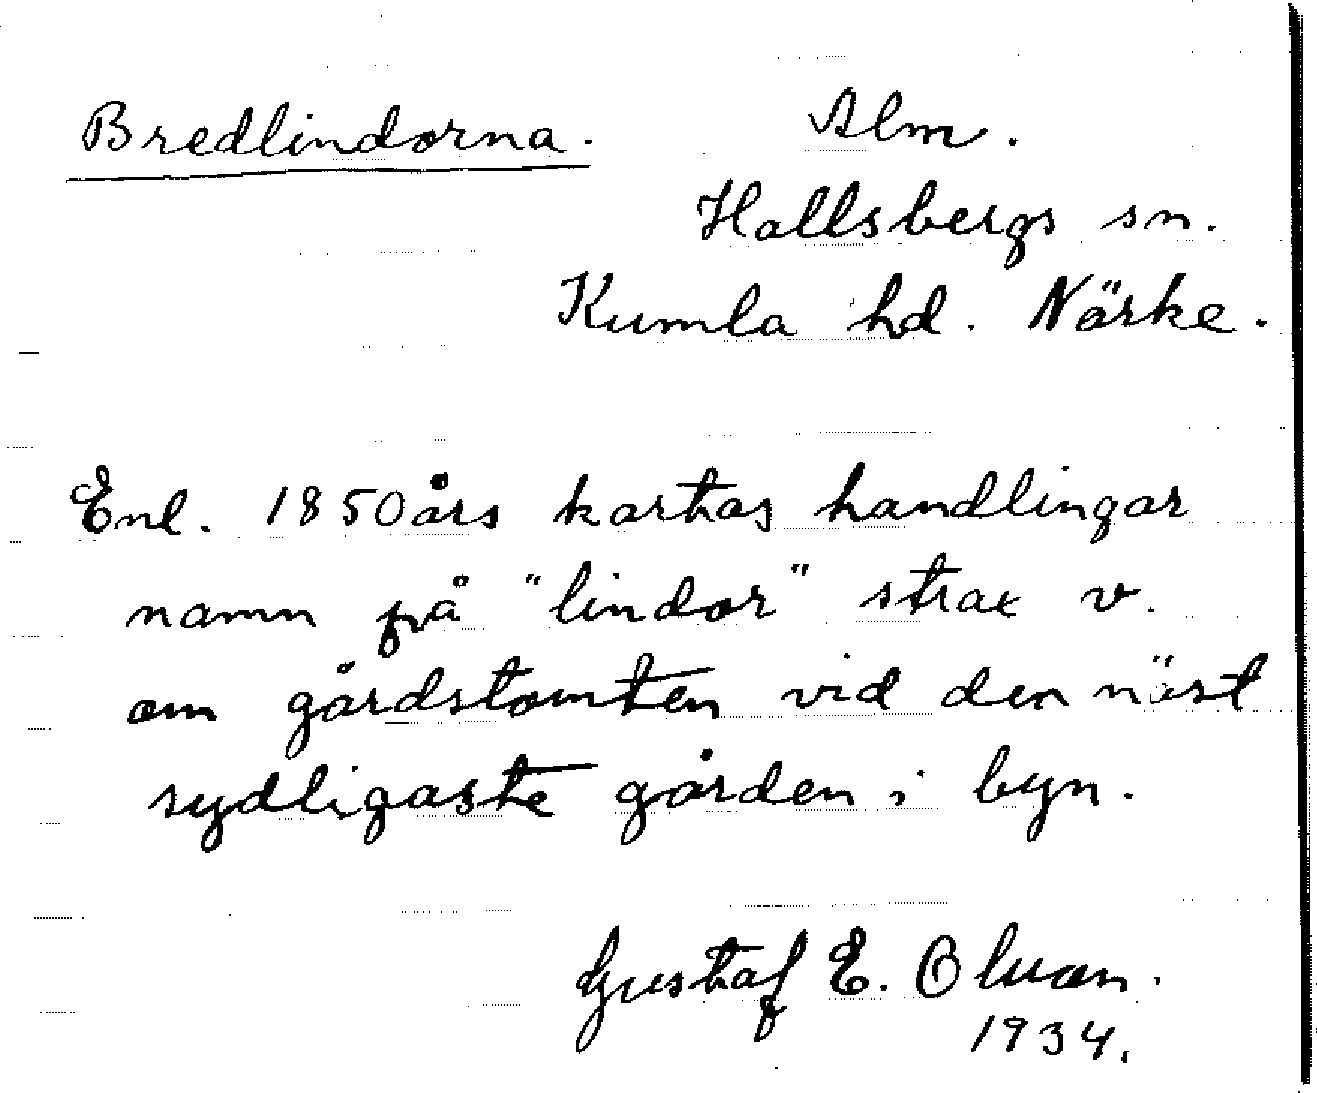 Bredlindorna.
Alm.
Hallsbergs sn.
Kumla hd. Närke.
Enl. 1850års kartas handlingar
namn på "lindor" strax v.
om gårdstomten vid den näst
sydligaste gården i byn.
Gustaf E. Olvan.
1934.